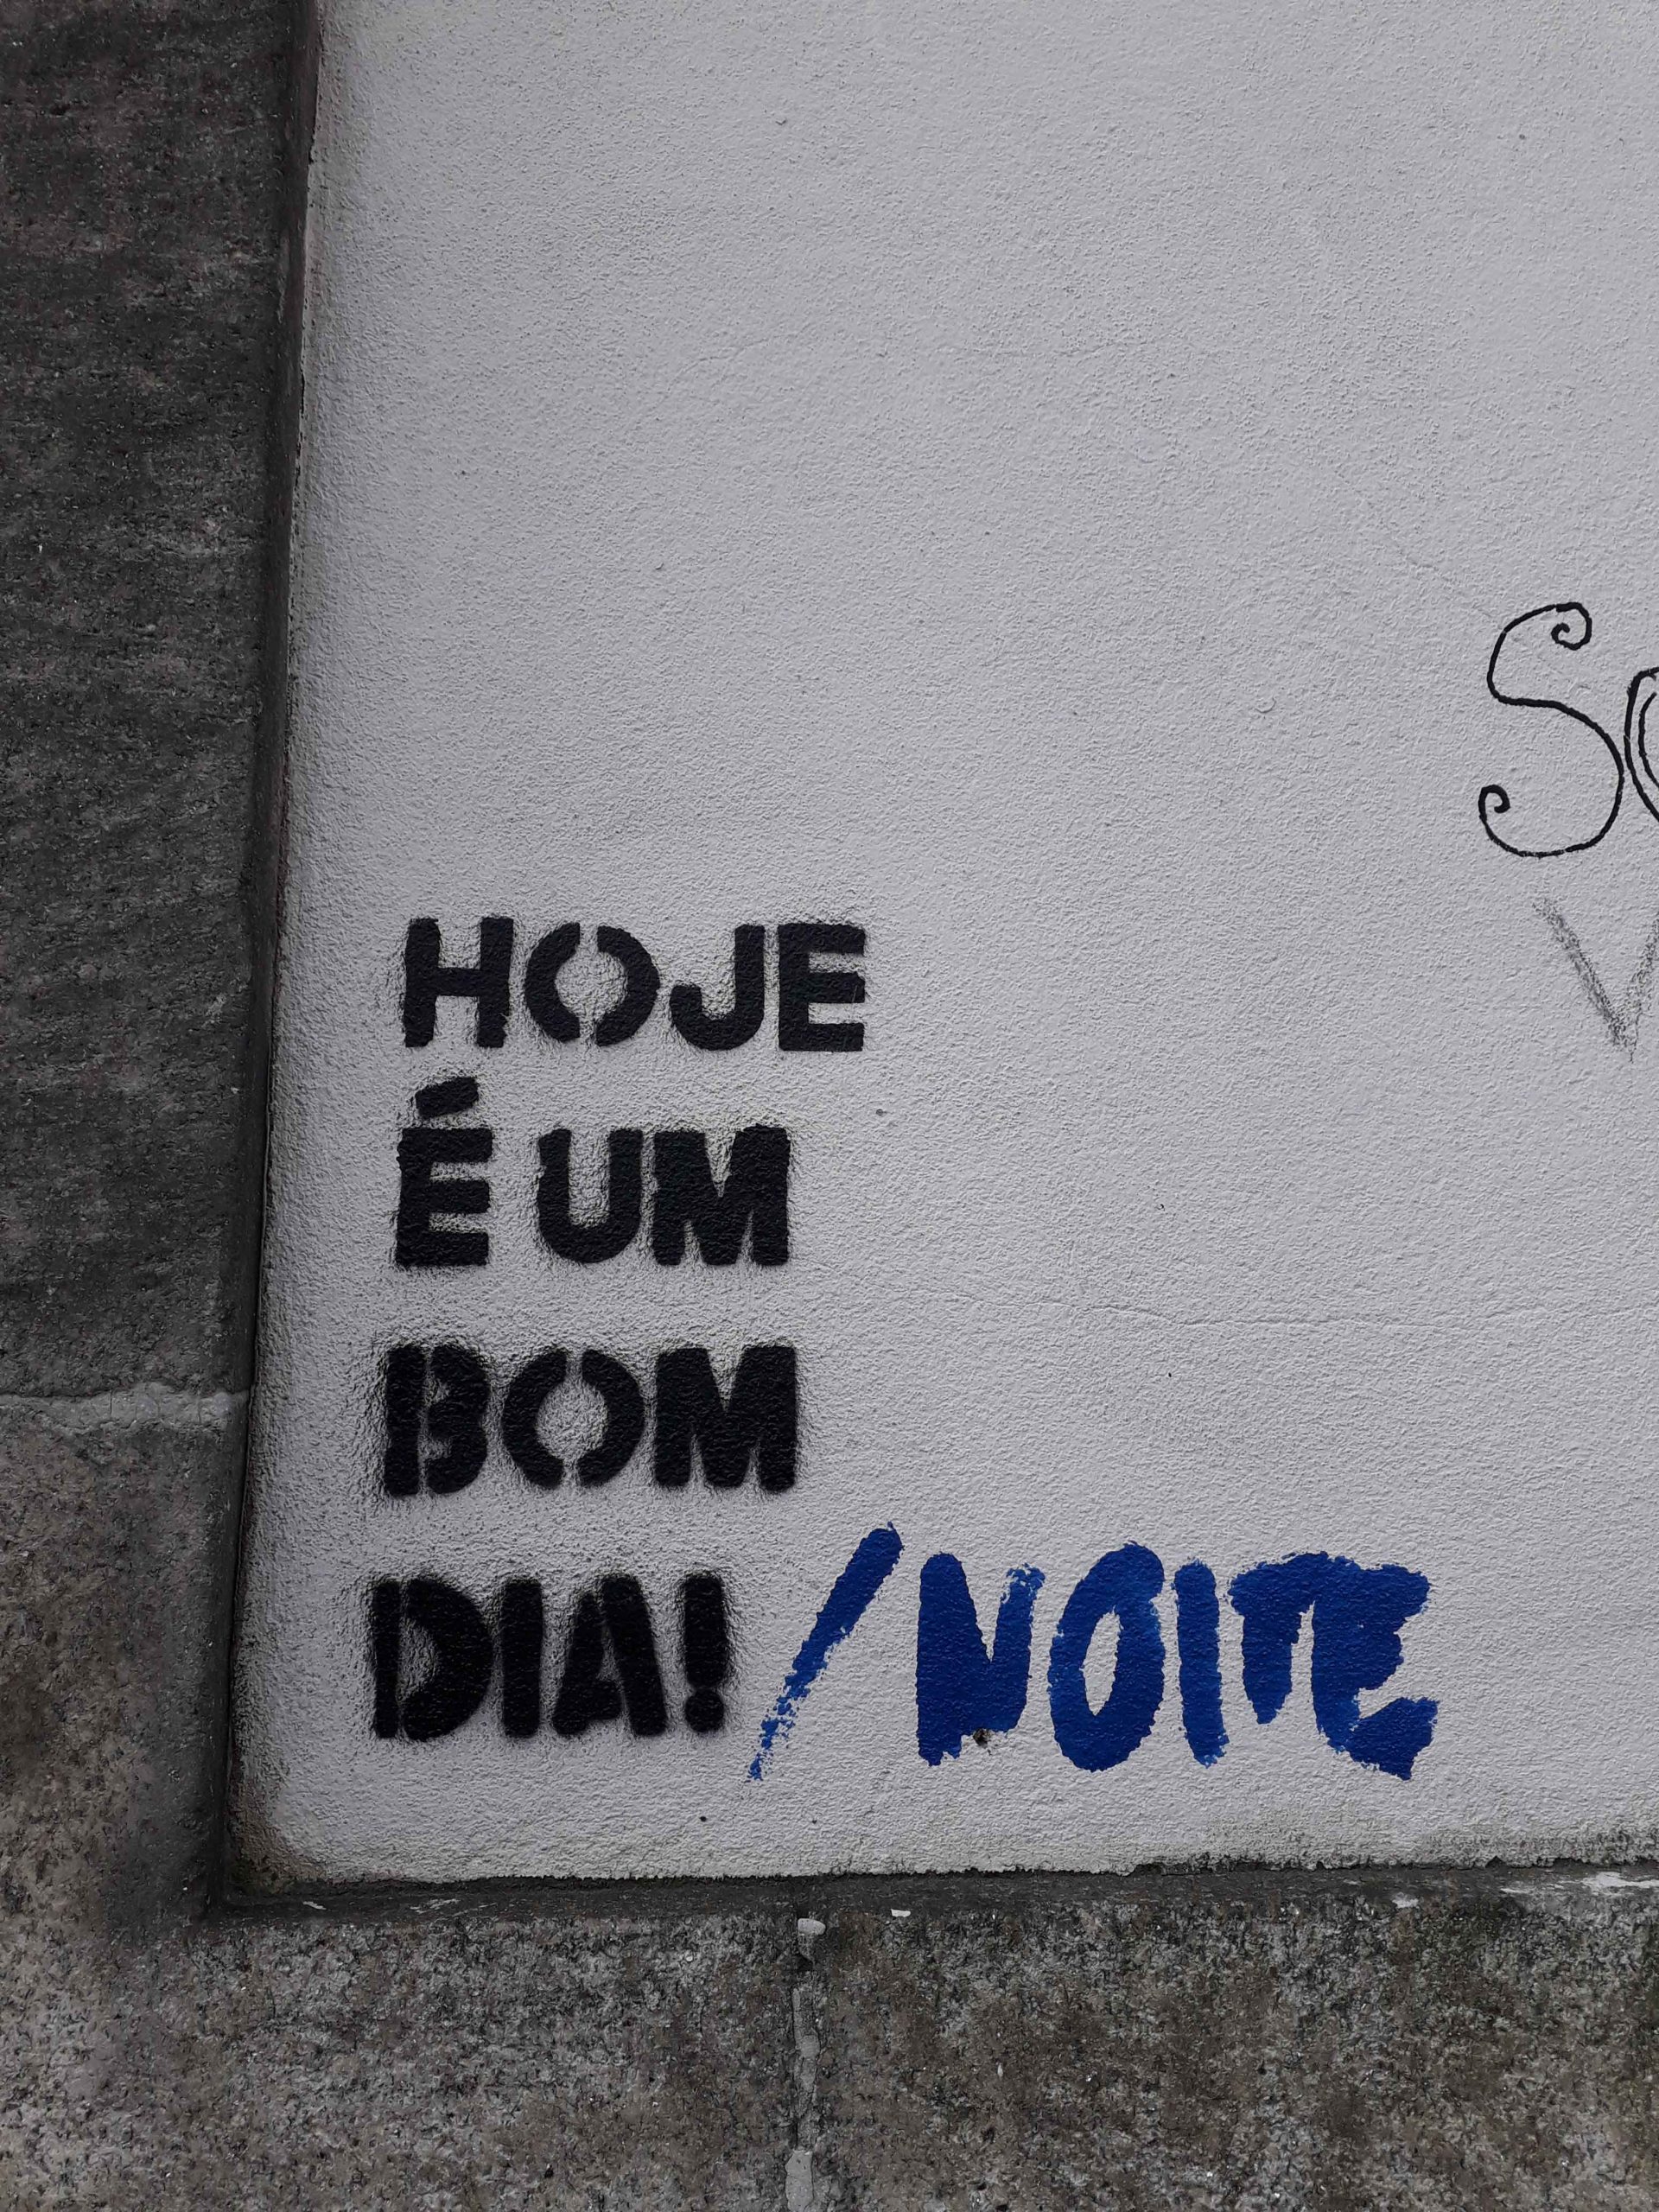 HOJE
É UM
BOM
DIA! / NOITE